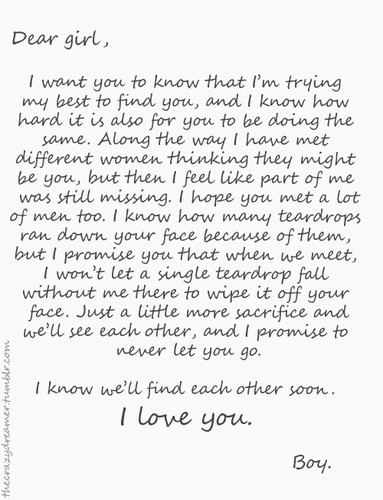 Dear girl,
I want you to know that I'm trying
my best to find you, and I know how
hard it is also for you to be doing the
same. Along the way I have met
different women thinking they might
be you, but then I feel like part of me
was still missing. I hope you met a lot
of men too. I know how many teardrops
ran down your face because of them,
but I promise you that when we meet,
I won't let a single teardrop fall
without me there to wipe it off your
face. Just a little more sacrifice and
we'll see each other, and I promise to
never let you go.
I know we'll find each other soon.
I love you.
Boy.
thecrazydreamer.tumblr.com